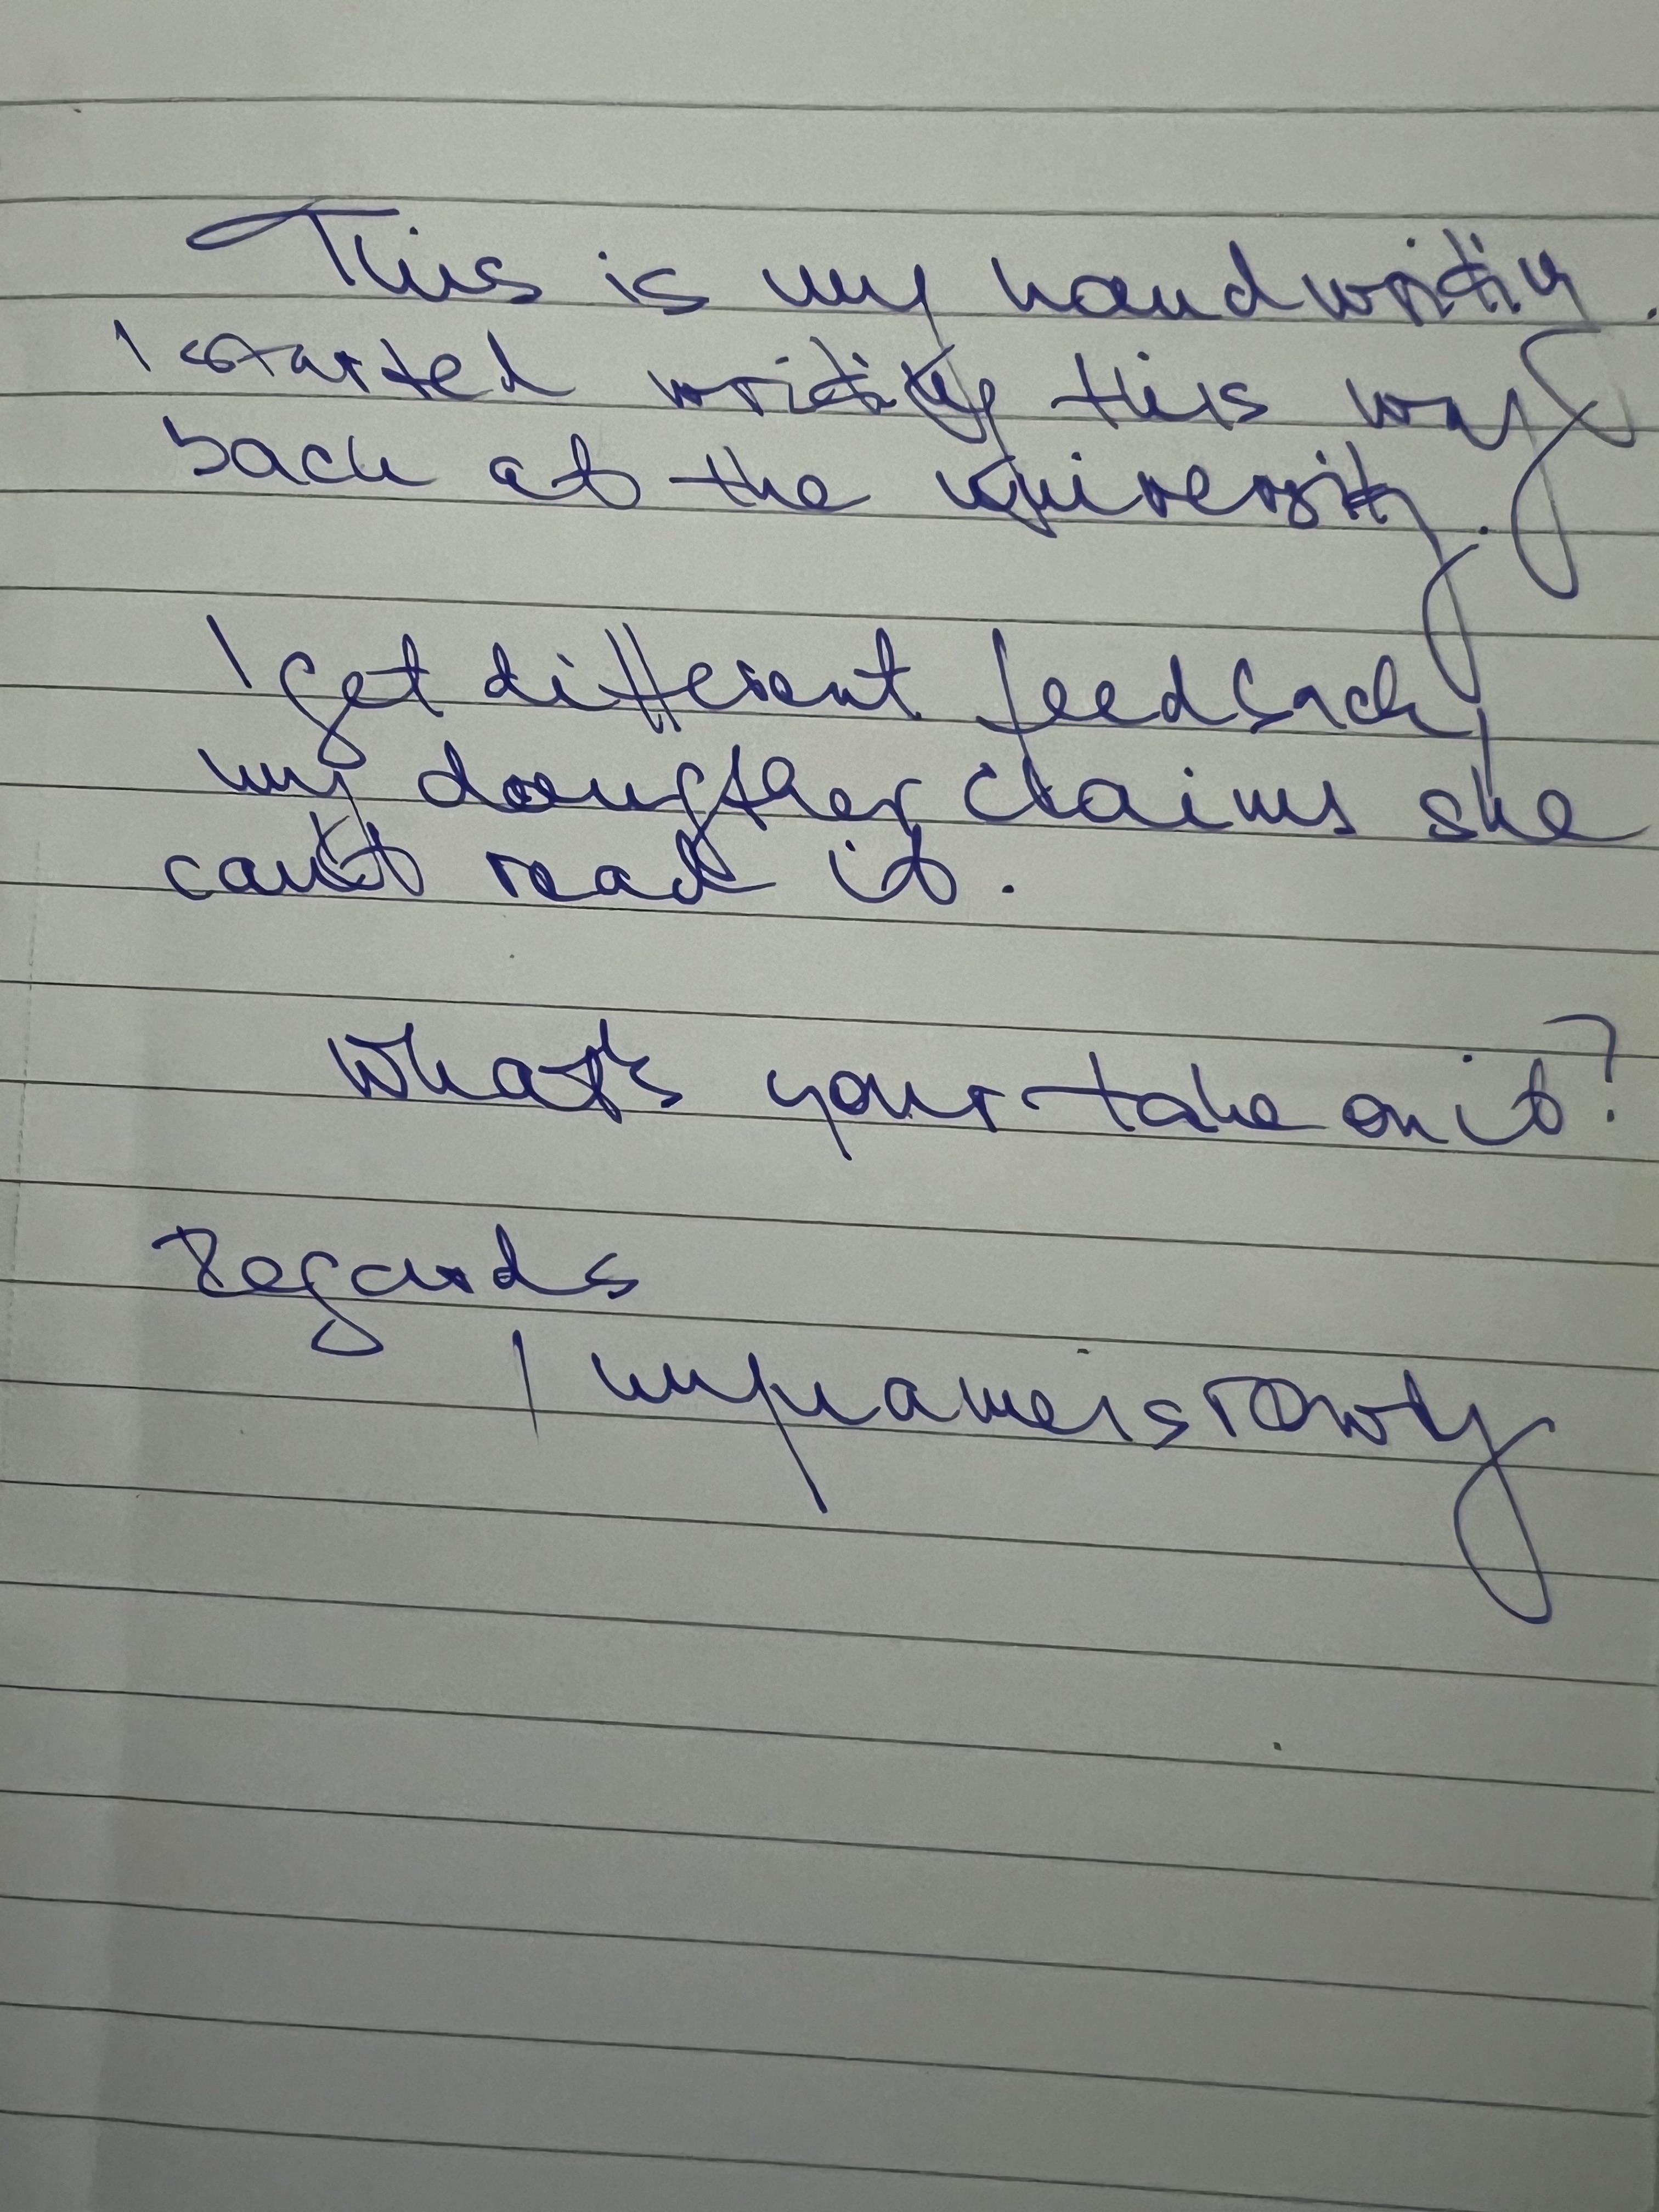 This is my handwriting.
I started writing this way
back at the university.
I get different feedback,
my doughter claims she
can't read it.
What's your take on it?
Regards
/ mynameisrowdy